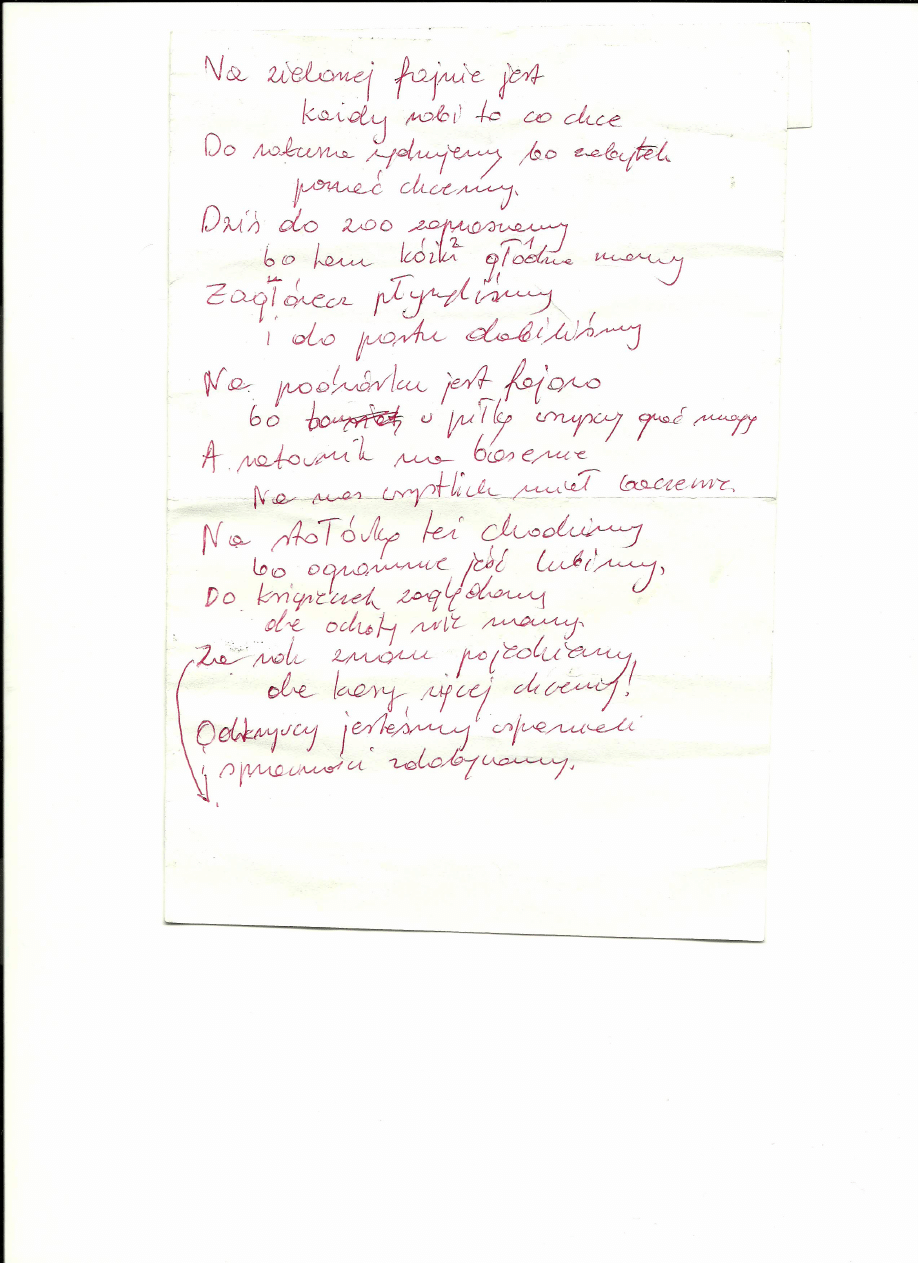 Na zielonej fajnie jest
każdy robi to co chce
Do ratusza wędrujemy bo zabytek
poznać chcemy.
Dziś do zoo zapraszamy
bo tam kózki² głodne¹ mamy
Żaglówecz płynęliśmy
i do portu dobiliśmy
Na podwórku jest fajowo
bo w piłkę wszyscy grać mogą
A ratownik na basenie
Na nas wszystkich miał baczenie.
Na stołówkę też chodzimy
bo ogromnie jeść lubimy,
Do książeczek zaglądamy
ale ochoty nie mamy.
Za rok znowu pojedziemy
ale kasy więcej chcemy!
Odkrywcy jesteśmy wspaniali
i sprawności zdobywamy.